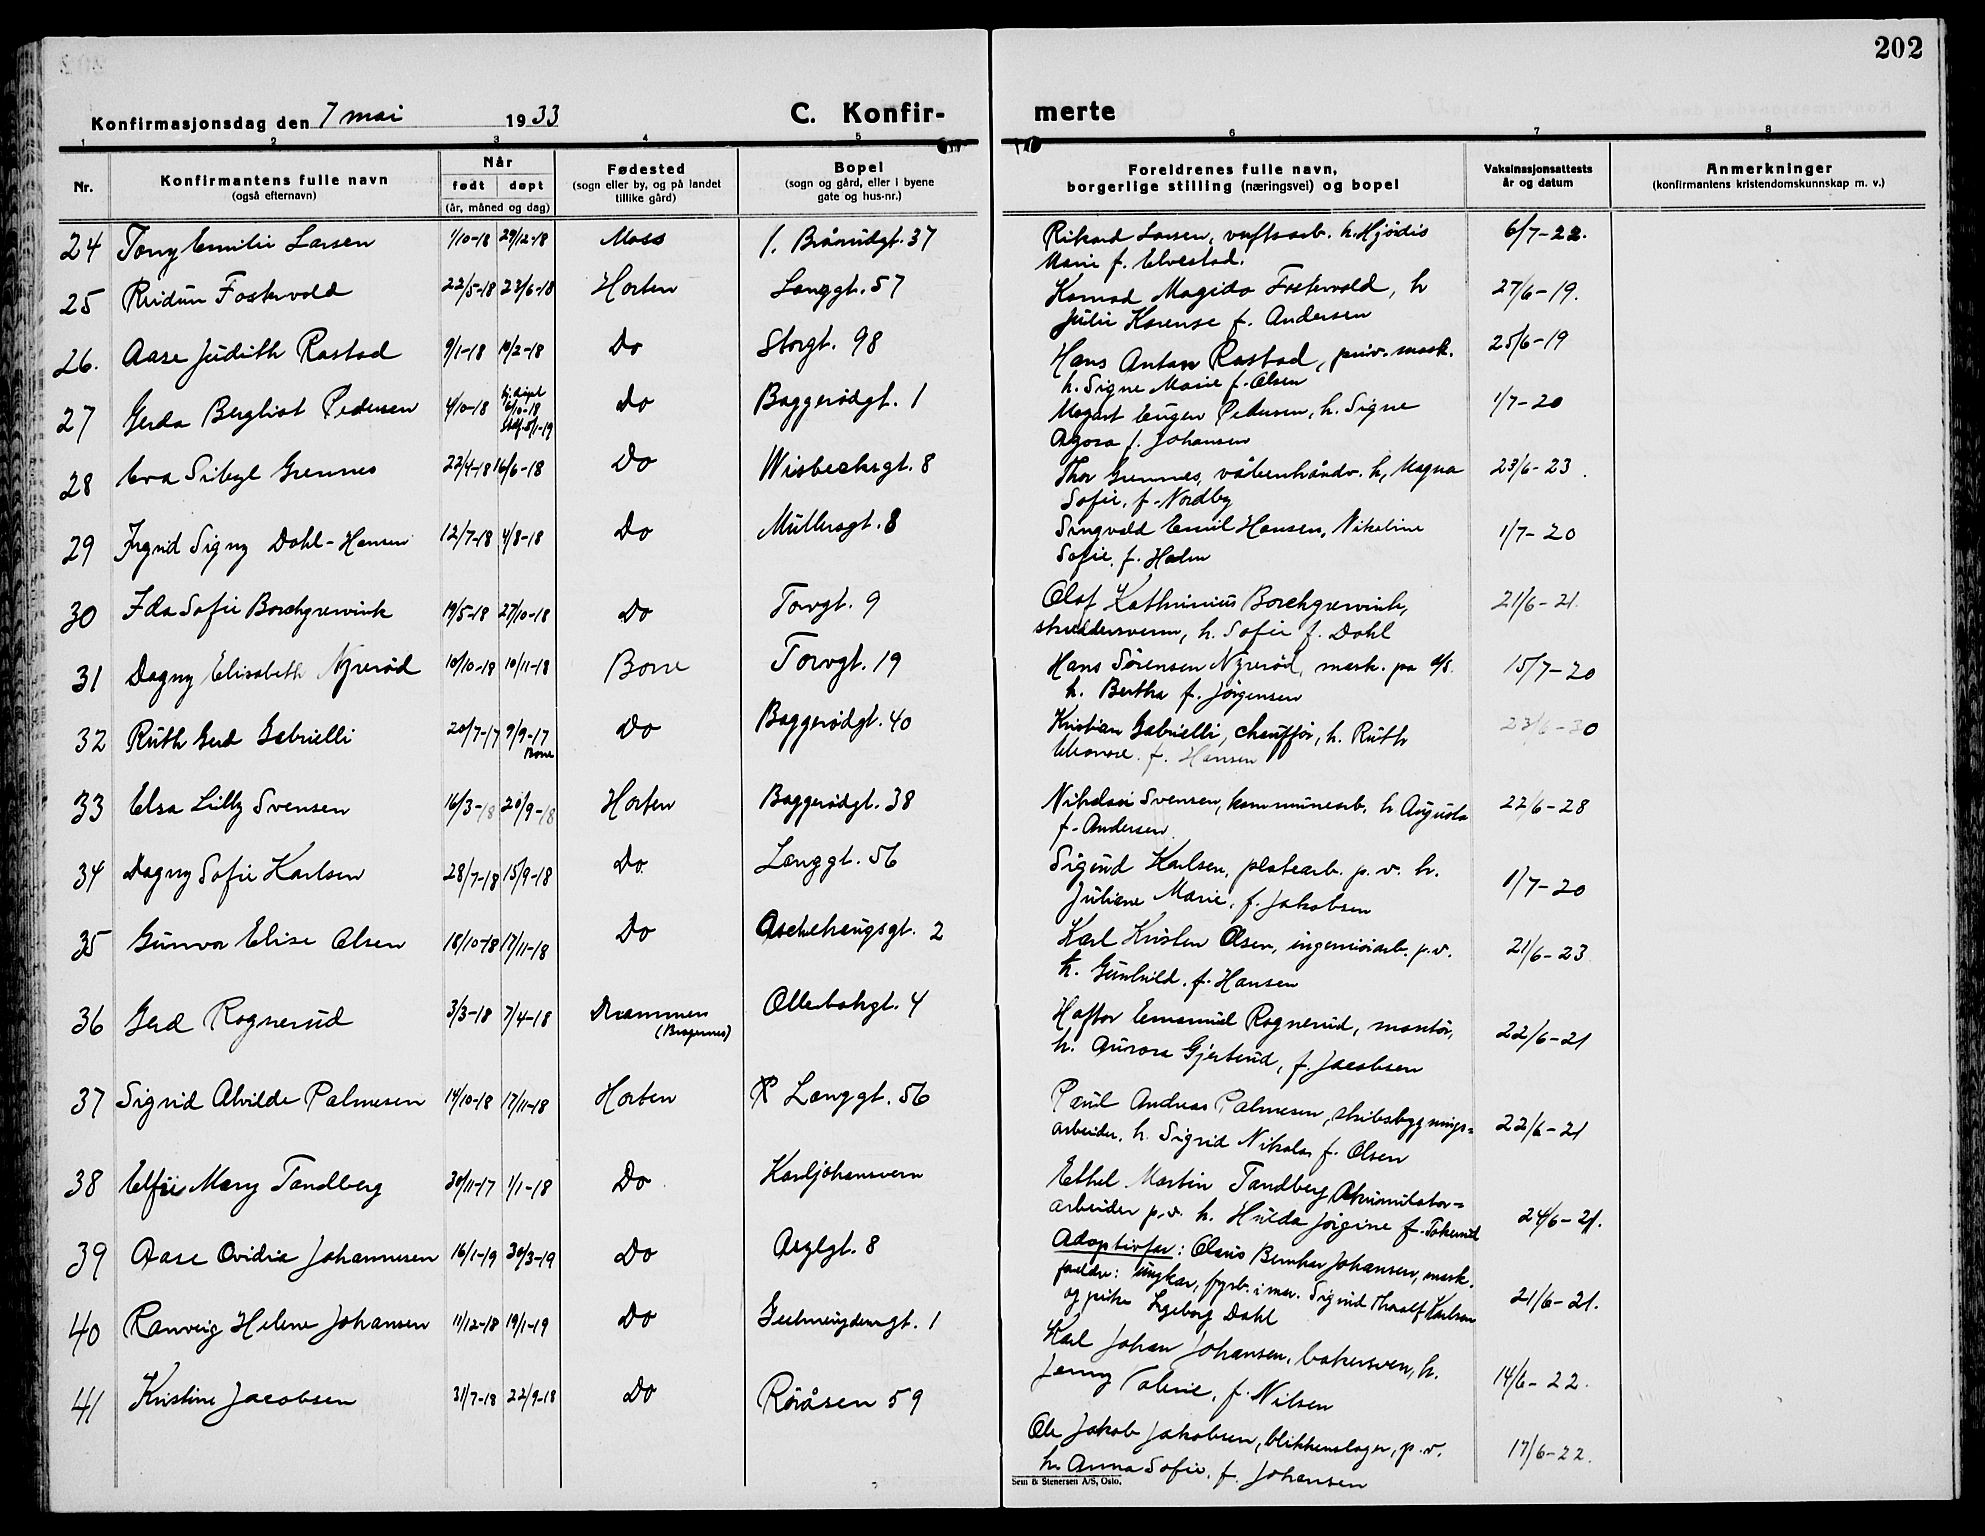 202
Konfirmasjonsdag den 7 mai 1933
C. Konfir-
merte
1 2 3 4 5 6 7 8
Nr.
Konfirmantens fulle navn
(også efternavn)
Når
født døpt
(år, måned og dag)
Fødested
(sogn eller by, og på landet
tillike gård)
Bopel
(sogn og gård, eller i byene
gate og hus-nr.)
Foreldrenes fulle navn,
borgerlige stilling (næringsvei) og bopel
Vaksinasjonsattests
år og datum
Anmerkninger
(konfirmantens kristendomskunnskap m. v.)
24 Tony Emilie Larsen 1/10-18 29/12-18 Moss 37 Rikard Larsen, verftsarb. h. Hjördis 6/7-22.
Marie f. Elvestad.
25 Reidun Fostervold 22/5-18 23/6-18 Horten Langgt. 57 Konrad Magido Fostervold, h 27/6-19.
Julie Karense f. Andersen
26. Aase Judith Rastad 9/1-18 10/2-18 Do Storgt. 98 Hans Anton Rastad, priv. mask. 25/6-19
h. Signe Marie f. Olsen
27 Gerda Bergliot Pedersen 4/10-18 hj. døpt Do Baggerødgt. 1 Mozart Eugen Pedersen, h. Signe 1/7-20
6/10-18
Stadf. 5/1-19
Agora f. Johansen
28 Eva Sibyl Grennes 22/4-18 16/6-18 Do Wisbechsgt. 8 Thor Grennes, våbenhåndv. h, Magna 23/6-23.
Sofie, f. Nordby
29 Ingrid Signy Dahl-Hansen 12/7-18 4/8-18 Do Müllersgt. 8 Singvald Emil Hansen, Nikoline 1/7-20
Sofie, f. Holm
30 Ida Sofie Borchgrevink 19/5-18 27/10-18 Do Torvgt. 9 Olaf Kathinius Borchgrevink, 21/6-21.
skreddersvenn, h. Sofie f. Dahl
31 Dagny Elisabeth Nyrerød 10/10-18 10/11-18 Borre Torvgt. 19 Hans Sørensen Nyrerød, mask. pa o/s. 15/7-20
h. Bertha f. Jørgensen
32 Ruth Gerd Gabrielli 20/7-17 9/9-17 Do Baggerødgt. 40 Kristian Gabrielli, chauffør, h. Ruth 23/6-30
Borre
Eleonore. f. Hansen
33 Elsa Lilly Svensen 16/3-18 20/9-18 Horten Baggerødgt. 38 Nikolai Svensen, kommunearb. h. Augusta 22/6-28
f. Andersen
34 Dagny Sofie Karlsen 28/7-18 15/9-18 Do. Langgt. 56 Sigurd Karlsen, platearb. p. v. h. 1/7-20
Juliane Marie, f. Jakobsen
35 Gunvor Elise Olsen 18/10-18 17/11-18 Do Aschehougsgt. 2 Karl Kristen Olsen, ingeniörarb. p.v. 21/6-23
h. Gunhild. f. Hansen
36 Gerd Rognerud 3/3-18 7/4-18 Drammen Ollebakgt. 4 Haftor Emanuel Rognerud, montör, 22/6-21
(Bragernes)
h. Aurora Gjertrud, f. Jacobsen
37 Sigrid Alvilde Palmesen 14/10-18 17/11-18 Horten Langgt. 56 Paul Andreas Palmesen, skibsbygnings= 22/6-21
arbeider, h. Sigrid Nikola f. Olsen
38 Elfie Mary Tandberg 30/11-17 1/1-18 Do Karljohansvern Ethel Martin Tandberg Akkumulator=
arbeider p.v. h. Hulda Jörgine f. Tokerud 24/6-21.
39 Aase Ovidia Johannesen 16/1-19 30/3-19 Do Asylgt. 8 Adoptivfar: Olaus Bernhar Johansen, mask.
foreldre: ungkar, fyrb. i mar. Sigurd Thoralf Karlsen 21/6-21.
og pike Ingeborg Dahl
40 Ranveig Helene Johansen 11/12-18 19/1-19 Do 1 Karl Johan Johansen, bakersven, h. 14/6-22.
Jenny Valerie, f. Nilsen
41 Kristine Jacobsen 31/7-18 22/9-18 Do Röråsen 59 Ole Jakob Jakobsen, blikkenslager, p. v. 17/6-22.
h. Anna Sofie, f. Johansen
Sem & Stenersen A/S, Oslo.